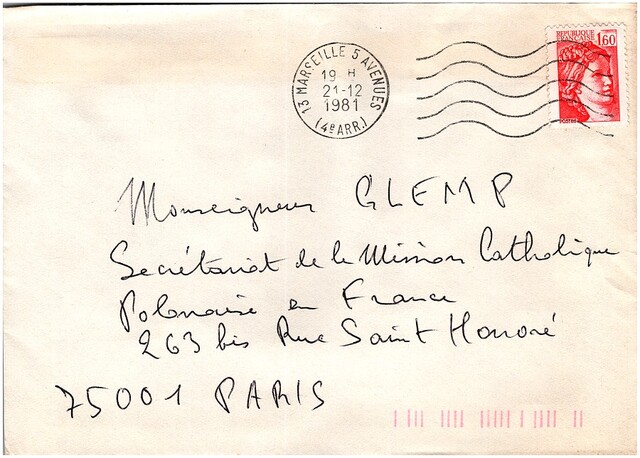 13 MARSEILLE 5 AVENUES
19 H
21-12
1981
(4e ARR.)
REPUBLIQUE
FRANCAISE
1,60
POSTES
Monseigneur GLEMP
Secrétariat de la Mission Catholique
Polonaise en France
263 bis Rue Saint Honoré
75001 PARIS